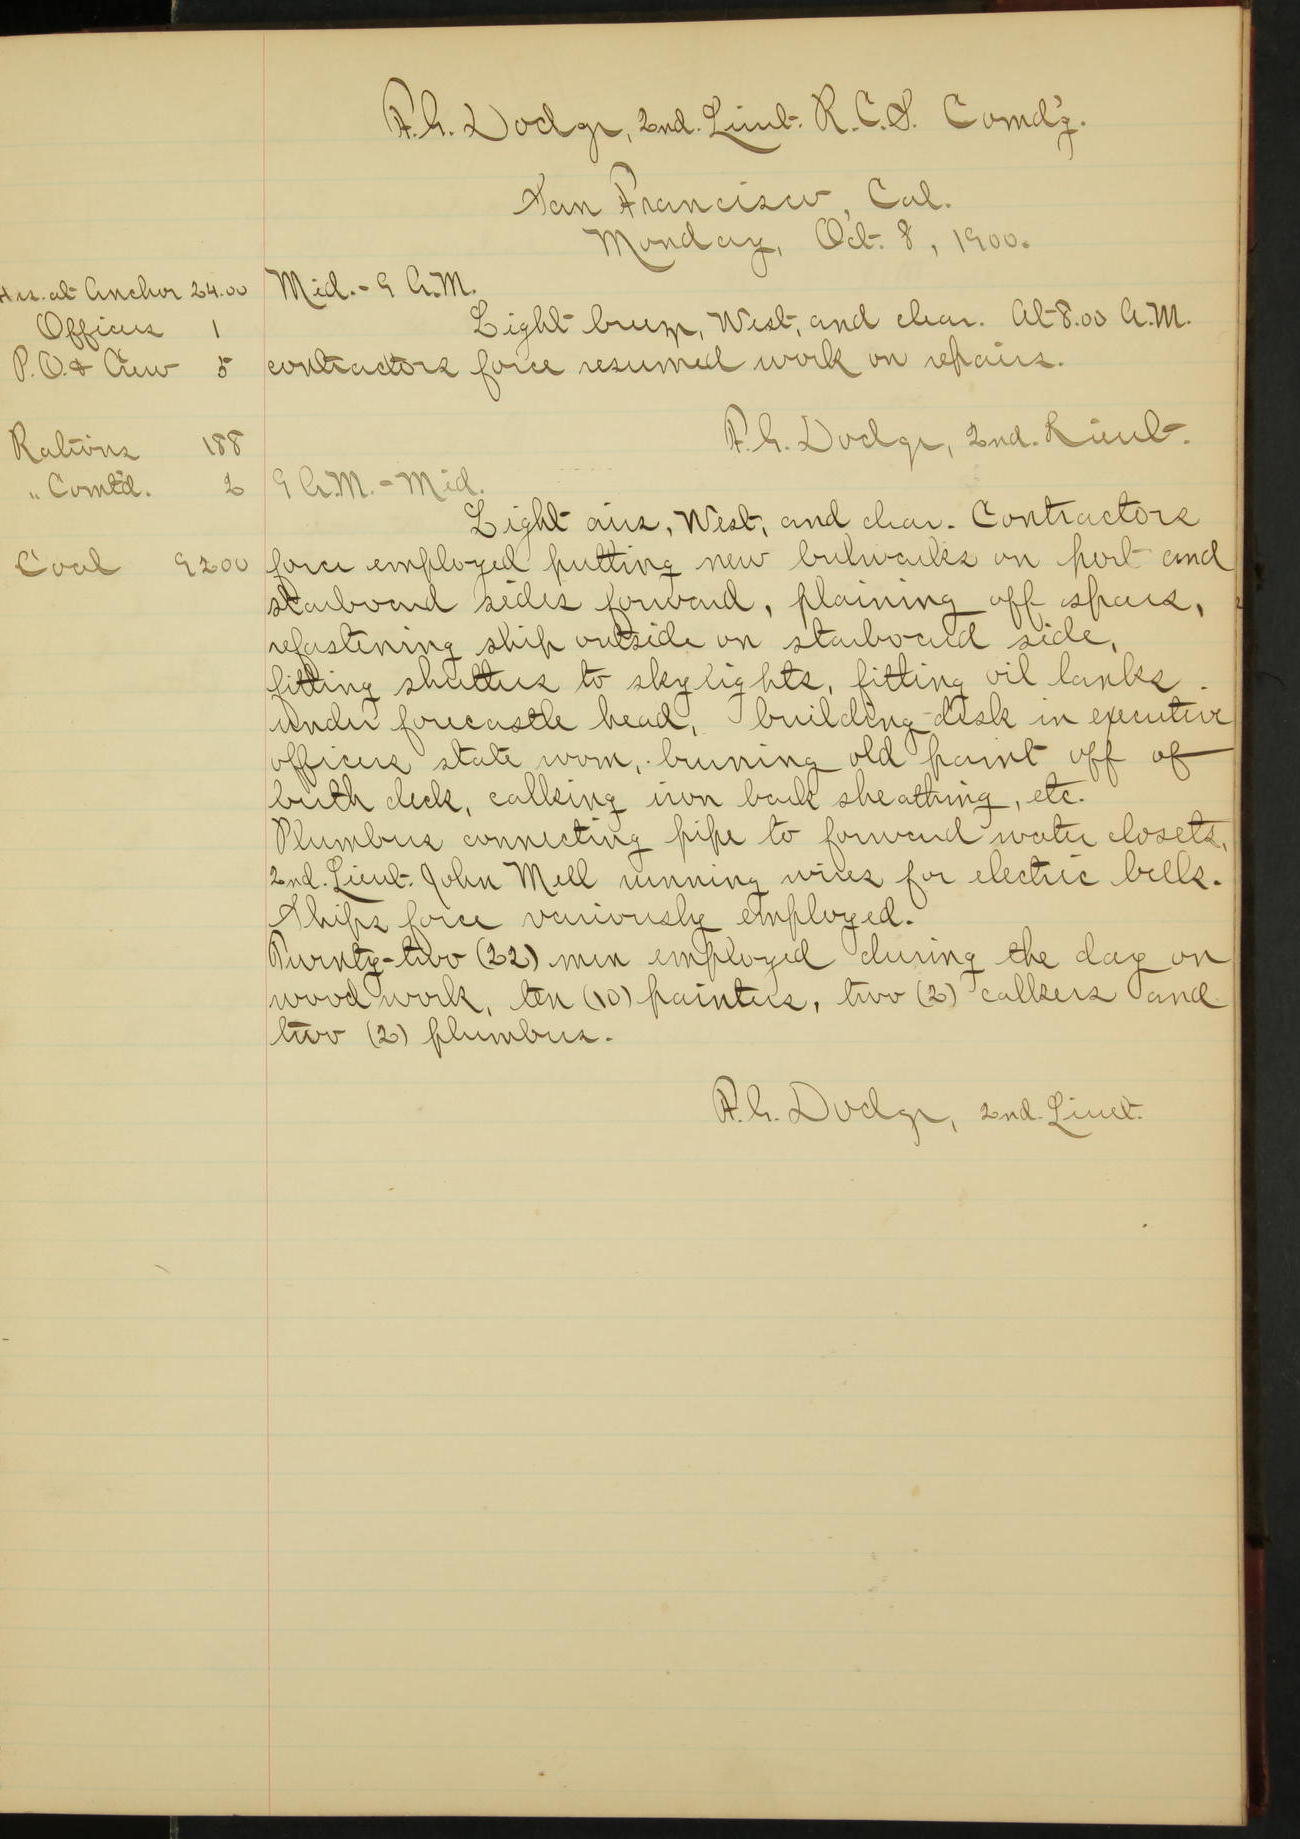 F.G. Dodge, 2nd. Lieut. R.C.S. Comd'g.
San Francisco, Cal.
Monday, Oct. 8, 1900.
Hrs. at Anchor 24.00
Officers 1
P.O. & Crew 5
Rations 188
" Comt'd. 2
Coal 9200
Mid. - 9 A.M.
Light breeze, West, and clear. At 8.00 A.M.
contractors force resumed work on repairs.
F.G. Dodge, 2nd. Lieut.
9 A.M. - Mid.
Light airs, West, and clear. Contractors
force employed putting new bulwarks on port and
starboard sides forward, plaining off spars,
refastening ship outside on starboard side,
fitting shutters to skylights, fitting oil tanks
under forecastle head, building desk in executive
officers state room, burning old paint off of
berth deck, calking iron bark sheathing, etc.
Plumbers connecting pipe to forward water closets,
2nd. Lieut. John Mell running wires for electric bells.
Ships force variously employed.
Twenty-two (22) men employed during the day on
wood work, ten (10) painters, two (2) calkers and
two (2) plumbers.
F.G. Dodge, 2nd. Lieut.